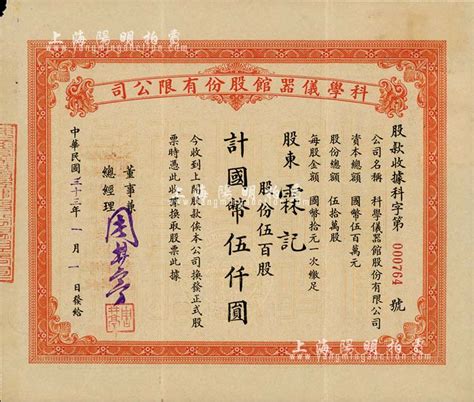 上海陽明拍賣
www.yangmingauction.com
科學儀器館股份有限公司
股款收據科字第 000764 號
公司名稱 科學儀器館股份有限公司
資本總額 國幣伍百萬元
股份總額 伍拾萬股
每股金額 國幣拾元一次繳足
股東 霖記
股份伍百股
計國幣伍仟圓
今收到上開股款俟本公司換發正式股
票時憑此收據換取股票此據
董事兼
總經理
中華民國三十三年一月一日發給
上海陽明拍賣
www.yangmingauction.com